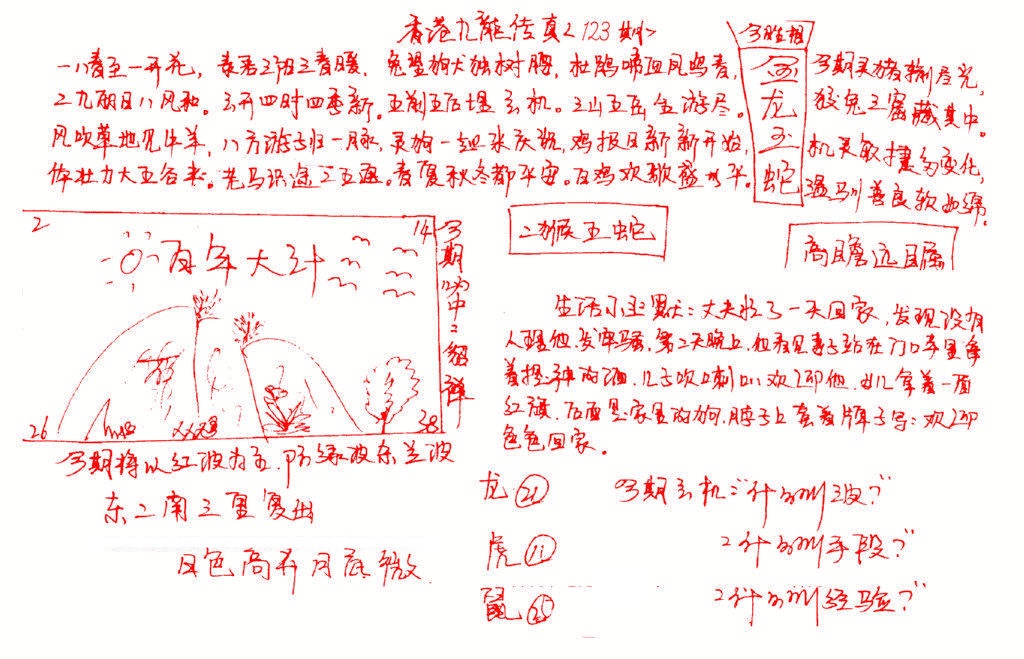 香港九龍传真<123期>
一八春至一开花，泰若三阳三春暖，兔望狗犬独树腾，杜鹃啼血凤鸣春，
二九明日八风和。云开四时四季新。五前五后埋玄机。三山五岳全游尽。
风吹草地见牛羊，八方游子归一脉，灵狗一起来庆祝，鸡报日新新开始，
体壮力大五谷来。老马识途三五遇。春夏秋冬都平安。百鸡欢歌盛水平。
今期相
金龙玉蛇
今期灵猪输尽光，
狡兔三窟藏其中。
机灵敏捷多变化，
温驯善良软如绵。
2
14
百年大计
26
38
今期心中二组群
二猴五蛇
高瞻远瞩
生活小幽默：丈夫
一天回家，发现没有
人理他，发牢骚，第二天晚上，他看见妻子站在门口手里拿
着提神的酒，儿子吹喇叭欢迎他，女儿拿着一面
红旗，后面是家里的狗，脖子上套着牌子写：欢迎
色色回家。
今期将以红波为主，防绿波东兰波
东二南三里复出
日色高升月底微
龙 21
虎 11
鼠 25
今期玄机："什么叫波？"
"什么叫手段？"
"什么叫经验？"